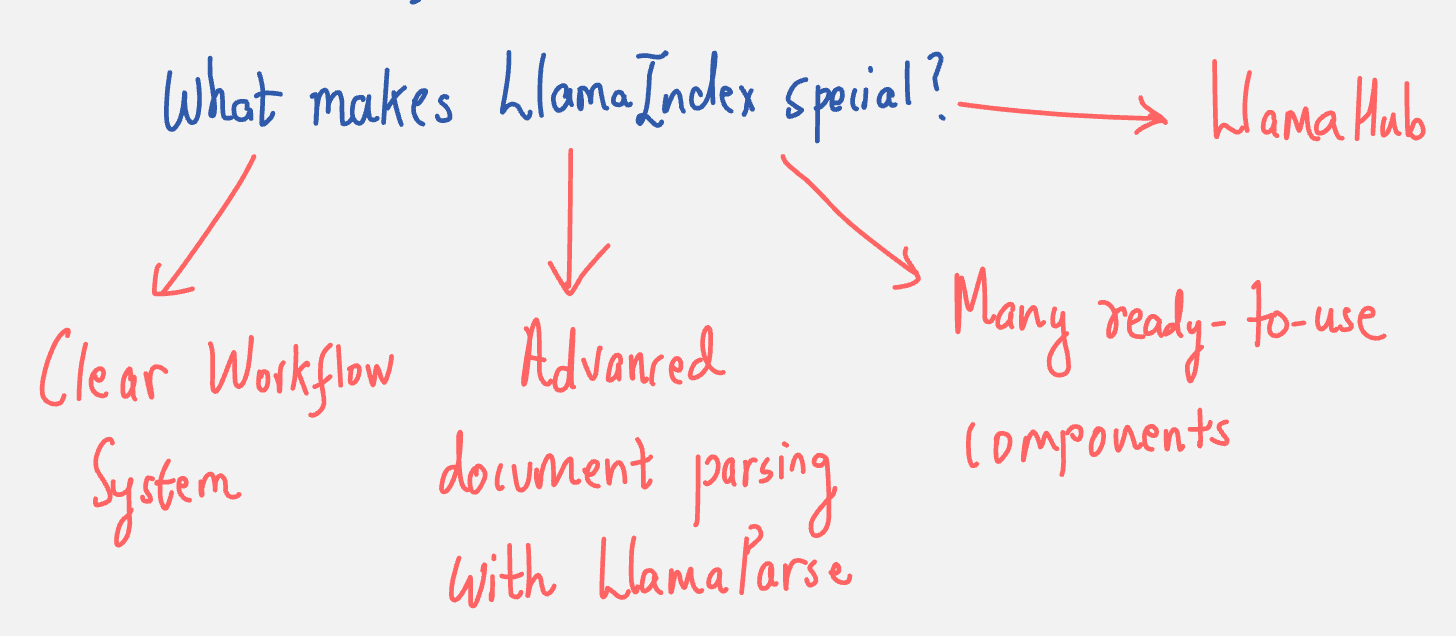 What makes LlamaIndex special?
LlamaHub
Clear Workflow
System
Advanced
document parsing
with LlamaParse
Many ready-to-use
components